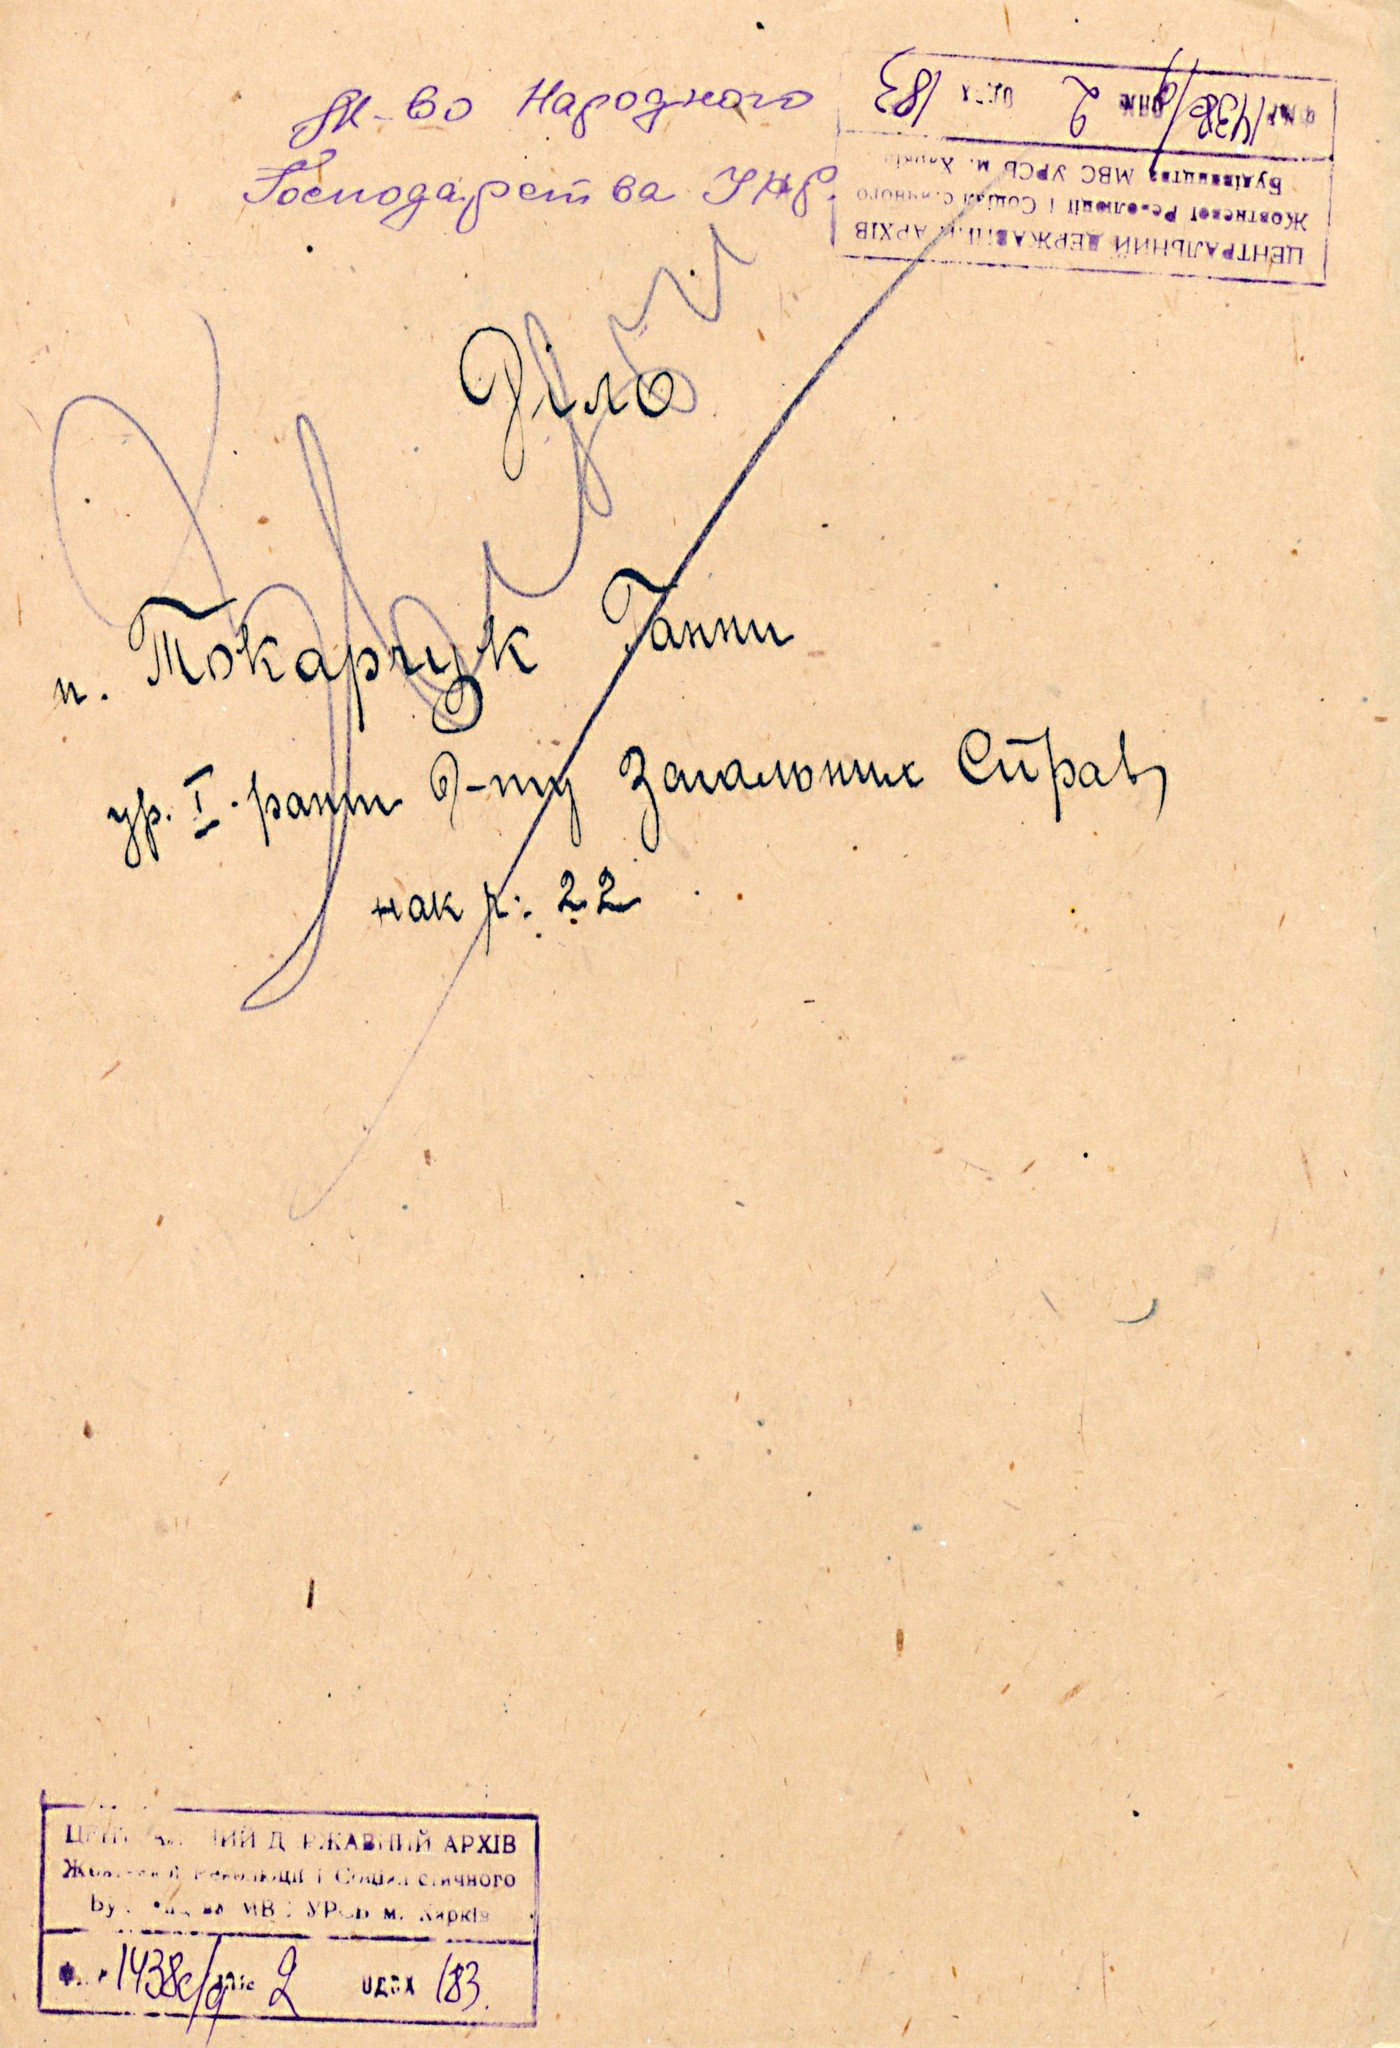 М-во Народного
Господарства УНР.
ЦЕНТРАЛЬНИЙ ДЕРЖАВНИЙ АРХІВ
Жовтневої Революції і Соціалістичного
Будівництва МВС УРСР м. Харків
ФОНД 1438с/9 ОПИС 2 ОД.ЗХ 183
Діло
п. Токарчук Ганни
ур. I. ранги Д-ту Загальних Справ,
нак р. 22
ЦЕНТРАЛЬНИЙ ДЕРЖАВНИЙ АРХІВ
Жовтневої Революції і Соціалістичного
Будівництва МВС УРСР м. Харків
1438с/9 опис 2 ОД.ЗХ 183.